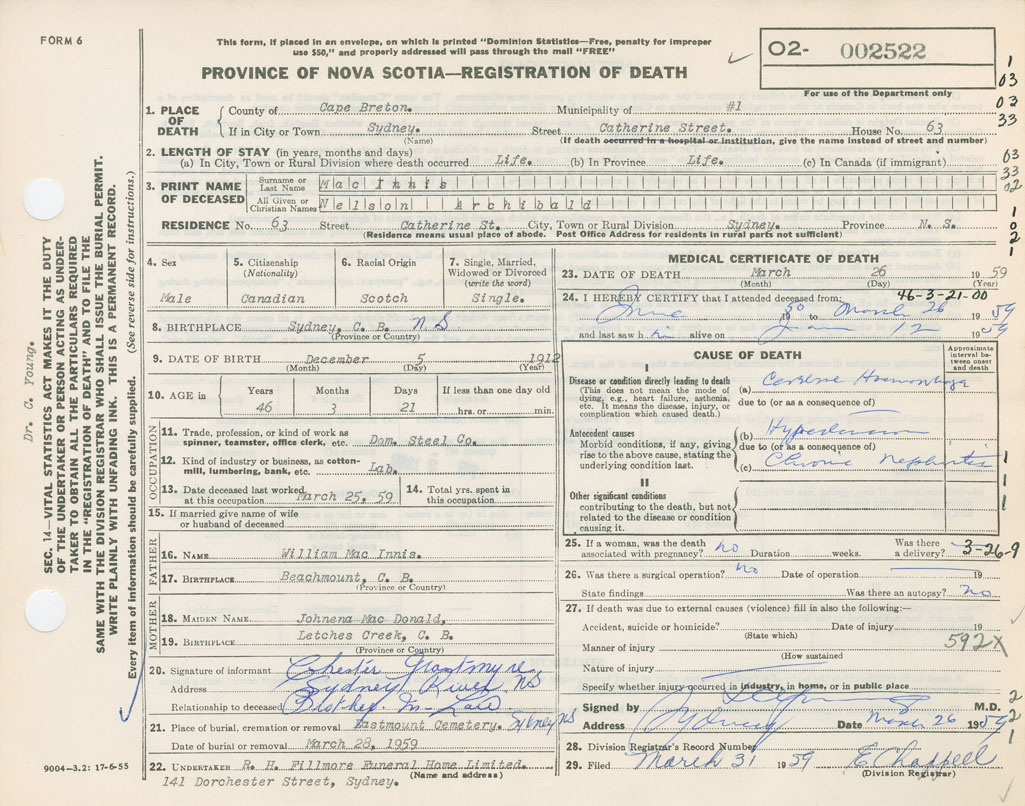 FORM 6
This form, if placed in an envelope, on which is printed "Dominion Statistics—Free, penalty for improper
use $50," and properly addressed will pass through the mail "FREE"
PROVINCE OF NOVA SCOTIA—REGISTRATION OF DEATH
O2- 002522
For use of the Department only
1
03
03
33
63
33
02
1
0
2
1
Dr. C. Young.
SEC. 14—VITAL STATISTICS ACT MAKES IT THE DUTY
OF THE UNDERTAKER OR PERSON ACTING AS UNDER-
TAKER TO OBTAIN ALL THE PARTICULARS REQUIRED
IN THE "REGISTRATION OF DEATH" AND TO FILE THE
SAME WITH THE DIVISION REGISTRAR WHO SHALL ISSUE THE BURIAL PERMIT.
WRITE PLAINLY WITH UNFADING INK. THIS IS A PERMANENT RECORD.
Every item of information should be carefully supplied. (See reverse side for instructions.)
1. PLACE OF DEATH County of Cape Breton. Municipality of #1
If in City or Town Sydney. Street Catherine Street. House No. 63
(Name) (If death occurred in a hospital or institution, give the name instead of street and number)
2. LENGTH OF STAY (in years, months and days)
(a) In City, Town or Rural Division where death occurred Life. (b) In Province Life. (c) In Canada (if immigrant)
3. PRINT NAME OF DECEASED Surname or Last Name Mac Innis
All Given or Christian Names Nelson Archibald
RESIDENCE No. 63 Street Catherine St. City, Town or Rural Division Sydney. Province N. S.
(Residence means usual place of abode. Post Office Address for residents in rural parts not sufficient)
4. Sex
Male
5. Citizenship
(Nationality)
Canadian
6. Racial Origin
Scotch
7. Single, Married,
Widowed or Divorced
(write the word)
Single.
8. BIRTHPLACE Sydney, C. B. N.S
(Province or Country)
9. DATE OF BIRTH December 5 1912
(Month) (Day) (Year)
10. AGE in Years Months Days If less than one day old
46 3 21 hrs. or min.
OCCUPATION
11. Trade, profession, or kind of work as
spinner, teamster, office clerk, etc. Dom. Steel Co.
12. Kind of industry or business, as cotton-
mill, lumbering, bank, etc. Lab.
13. Date deceased last worked
at this occupation March 25, 59
14. Total yrs. spent in
this occupation
15. If married give name of wife
or husband of deceased
FATHER
16. NAME William Mac Innis.
17. BIRTHPLACE Beachmount, C. B.
(Province or Country)
MOTHER
18. MAIDEN NAME Johnena Mac Donald,
19. BIRTHPLACE Letches Creek, C. B.
(Province or Country)
20. Signature of informant Chester Grantmyre
Address Sydney River NS
Relationship to deceased Brother-In-Law
21. Place of burial, cremation or removal Eastmount Cemetery. Sydney NS
Date of burial or removal March 28, 1959
22. UNDERTAKER R. H. Fillmore Funeral Home Limited.
(Name and address)
141 Dorchester Street, Sydney.
9004-3.2: 17-6-55
MEDICAL CERTIFICATE OF DEATH
23. DATE OF DEATH March 26 1959
(Month) (Day) (Year)
46-3-21-00
24. I HEREBY CERTIFY that I attended deceased from
June 1950 to March 26 1959
and last saw him alive on Jan 12 1959
CAUSE OF DEATH
Approximate
interval be-
tween onset
and death
I
Disease or condition directly leading to death
(This does not mean the mode of
dying, e.g., heart failure, asthenia,
etc. It means the disease, injury, or
complication which caused death.)
(a) Cerebral Haemorrhage
due to (or as a consequence of)
Antecedent causes
Morbid conditions, if any, giving
rise to the above cause, stating the
underlying condition last.
(b) Hypertension
due to (or as a consequence of)
(c) Chronic Nephritis
1
1
1
II
Other significant conditions
contributing to the death, but not
related to the disease or condition
causing it.
25. If a woman, was the death
associated with pregnancy? no Duration weeks. Was there
a delivery? 3-26-9
26. Was there a surgical operation? no Date of operation 19
State findings Was there an autopsy? no
27. If death was due to external causes (violence) fill in also the following:—
Accident, suicide or homicide? Date of injury 19
(State which)
592X
Manner of injury
(How sustained
Nature of injury
Specify whether injury occurred in industry, in home, or in public place
Signed by M.D.
Address Sydney Date March 26 1959
2
2
1
28. Division Registrar's Record Number
29. Filed March 31 1959 E Chappell
(Division Registrar)